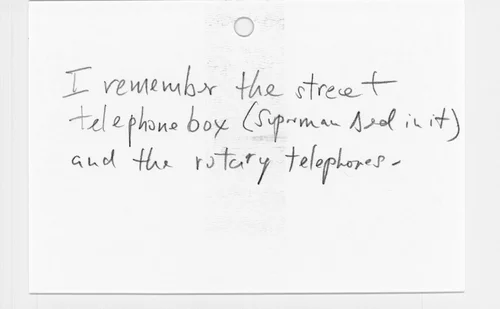 I remember the street
telephone box (Superman in it)
and the rotary telephones.